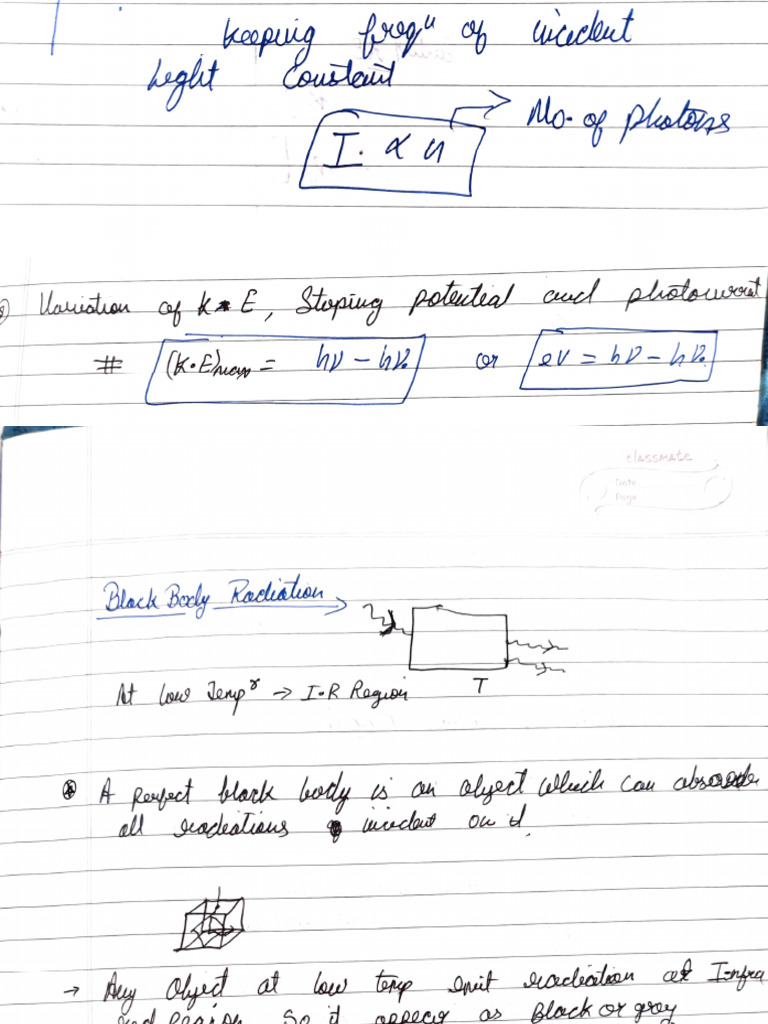 keeping freqⁿ of incident
light constant
I. ∝ n → No. of photons
Variation of K.E, Stoping potential and photocurrent
# (K.E)max = hν - hν₀ or eV = hν - hν₀
classmate
Date
Page
Black Body Radiation →
At low Tempʳ → I.R Region
T
⊛ A perfect black body is an object which can absorb
all radiations incident on it.
→ Any object at low temp emit radiation at Infra
red region. So it appear as Black or gray